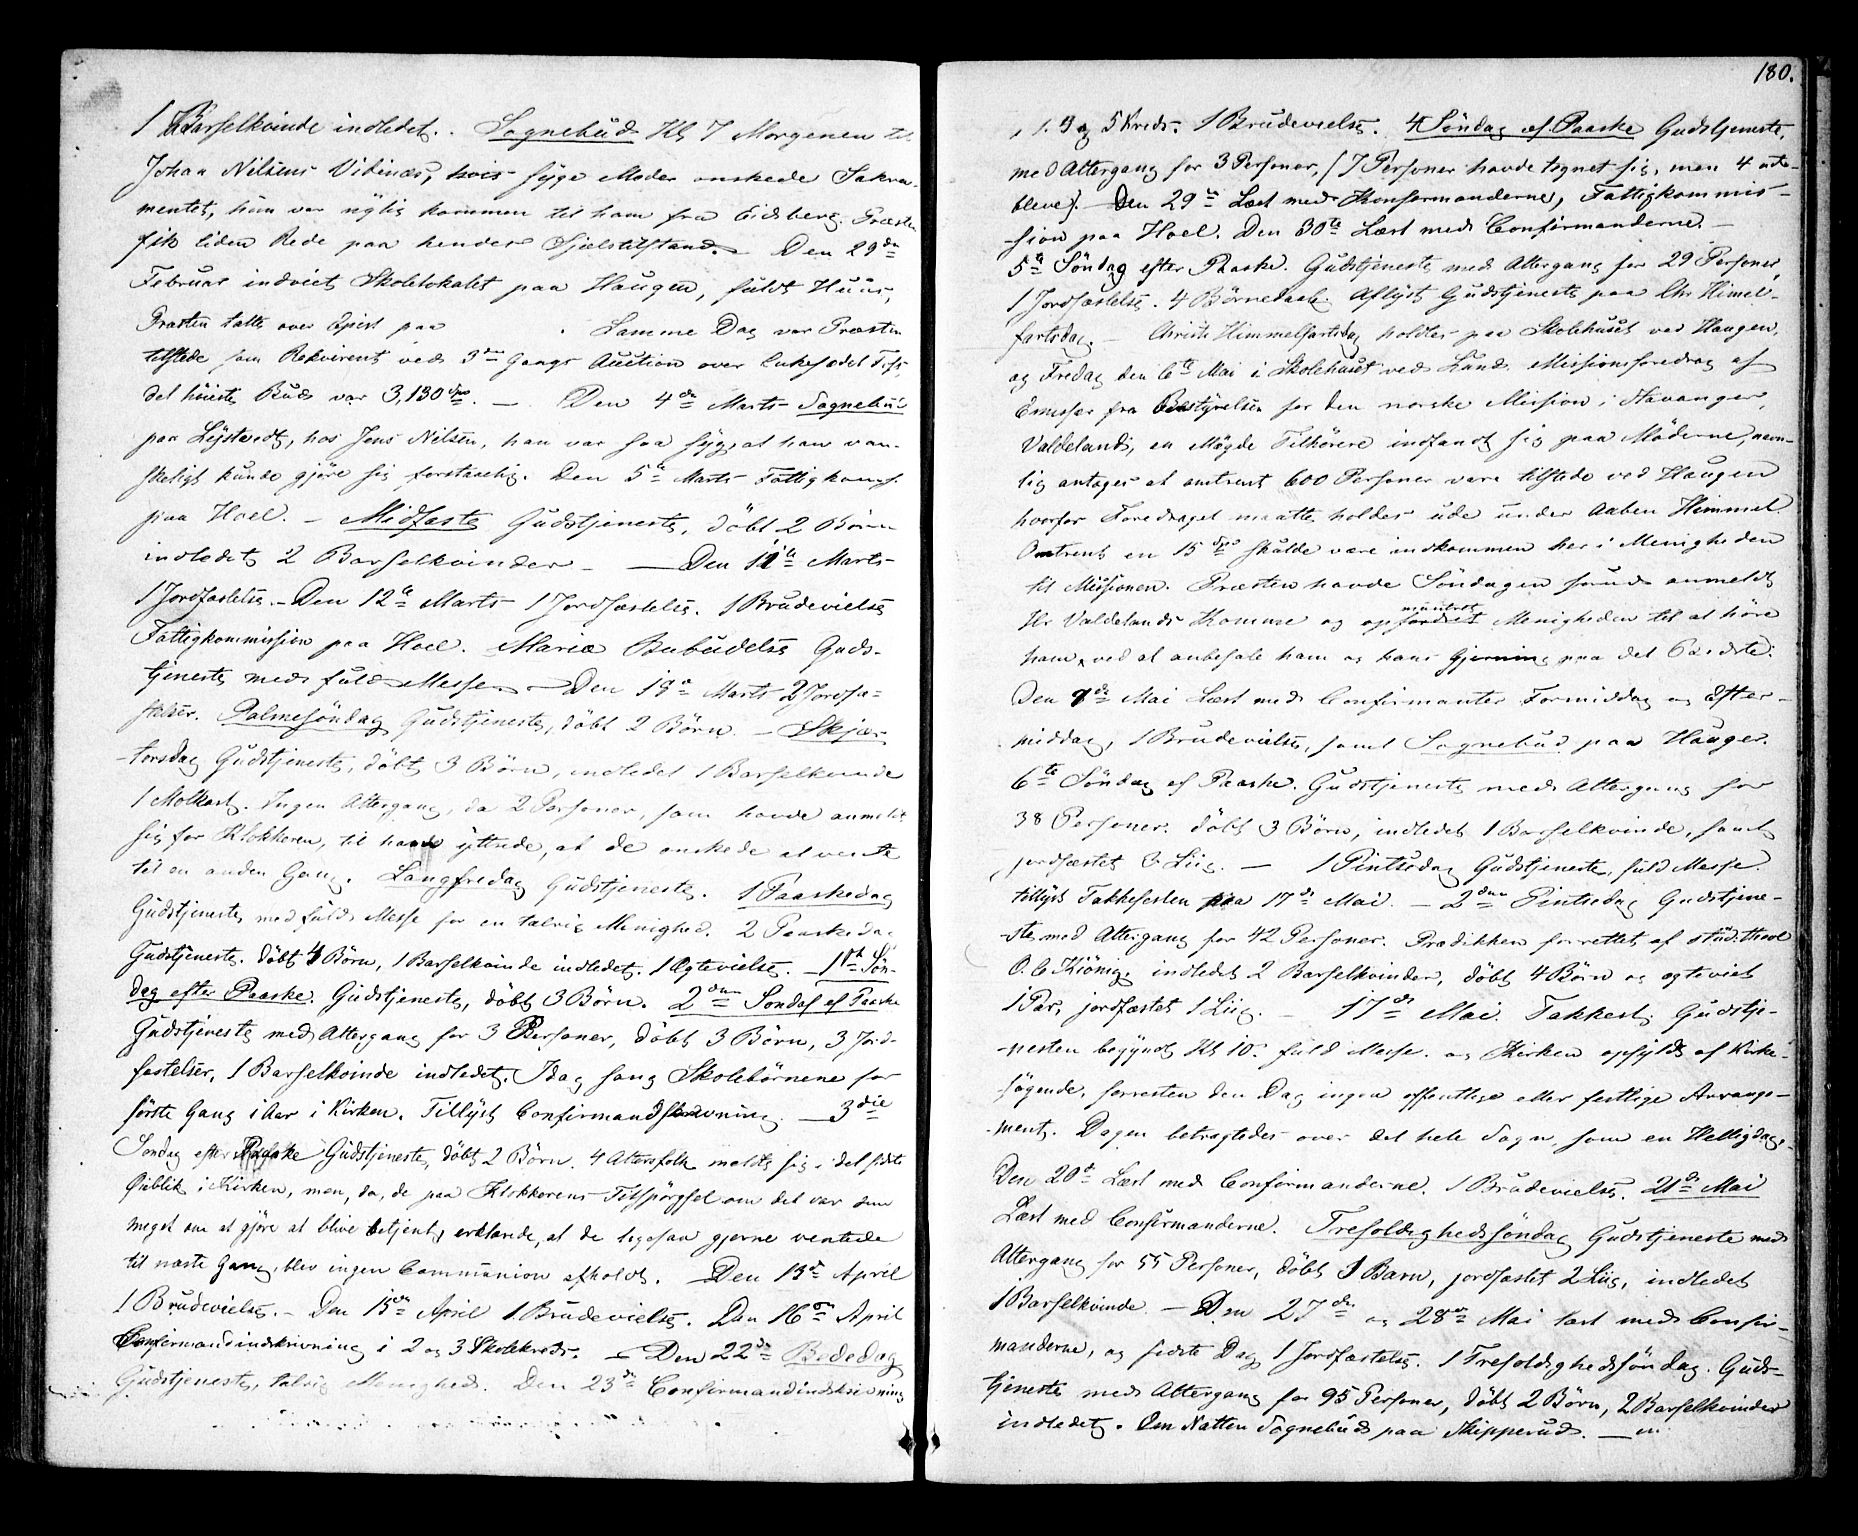 1 Barselkvinde indledet. Sognebud Kl 7 Morgenen til
Johan Nilsens Vidinæs, hvis syge Moder ønskede Sakra-
mentet, hun var nylig kommen til ham fra Eidsberg. Præsten
fik liden Rede paa hendes Sjælstilstand. Den 29de
Februar indviet Skolelokalet paa Haugen, fuldt Huus,
Præsten talte over
paa
. Samme Dag var Præsten
tilstede som Rekvirent ved 3die Gangs Auction over
det høieste Bud var 3,130 Spd. — Den 4de Marts Sognebud
paa Lystvedt, hos Jens Nilsen, han var saa syg, at han van-
skeligt kunde gjøre sig forstaaelig. Den 5te Marts Fattigkomms.
paa Hoel. – Midfaste Gudstjeneste, døbt 2 Børn
indledet 2 Barselkvinder – — Den 11te Marts
1 Jordfæstelse. – Den 12te Marts 1 Jordfæstelse. 1 Brudevielse
Fattigkommission paa Hoel. Mariæ Bebudelse Guds-
tjeneste med fuld Messe. — Den 19de Marts 2 Jordfæ-
stelser. Palmesöndag Gudstjeneste, döbt 2 Börn – Skjær-
torsdag Gudstjeneste, döbt 3 Börn, indledet 1 Barselkvinde
1 . Ingen Altergang, da 2 Personer, som havde anmeldt
sig for Klokkeren, til ham yttrede, at de ønskede at vente
til en anden Gang. Langfredag Gudstjeneste. 1 Paaskedag
Gudstjeneste med fuld Messe for en talrig Menighed. 2 Paaskedag
Gudstjeneste. döbt 4 Börn, 1 Barselkvinde indledet. 1 Ægtevielse. — 1ste Søn-
dag efter Paaske. Gudstjeneste, döbt 3 Börn. 2den Søndag ef Paaske
Gudstjeneste med Altergang for 3 Personer, döbt 3 Börn, 3 Jord-
fæstelser, 1 Barselkvinde indledet. Idag sang Skolebörnene for
förste Gang i Aar i Kirken. Tillyst Confirmandskrivning. — 3die
Søndag efter Paaske Gudstjeneste, döbt 2 Börn. 4 Altersfolk meldte sig i det sidste
Øieblik i Kirken, men, da, de paa Klokkerens Tilspörgsel om det var dem
meget om at gjöre at blive betjent, erklærede, at de ligesaa gjerne ventede
til næste Gang, blev ingen Communion afholdt. Den 13de April
1 Brudevielse. – Den 15de April 1 Brudevielse. Den 16de April
Confirmandindskrivning i 2 og 3 Skolekreds. — Den 22de Bededag
Gudstjeneste, talrig Menighed. Den 23de Confirmandindskrivning
180.
i 1. 3 og 5 Kreds. 1 Brudevielse. 4 Söndag ef. Paaske Gudstjeneste,
med Altergang for 3 Personer, (7 Personer havde tegnet sig, men 4 ude-
bleve). – Den 29de Læst med Konfirmanderne, Fattigkommis-
sion paa Hoel. Den 30te Læst med Confirmanderne. —
5te Söndag efter Paaske. Gudstjeneste med Altergang for 29 Personer,
1 Jordfæstelse. 4 Börnedaab. Aflyst Gudstjeneste paa Chr Himel-
fartsdag. – Christi Himmelfartsdag holdtes paa Skolehuset ved Haugen,
og Fredag den 6te Mai i Skolehuset ved Lund Missionsforedrag af
Emissær fra Bestyrelsen for den norske Mission i Stavanger,
Valdeland, en Mængde Tilhörere indfandt sig paa Möderne, nem-
lig antages at omtrent 600 Personer vare tilstede ved Haugen
hvorfor Foredraget maatte holdes ude under aaben Himmel.
Omtrent en 15 Spd skulde være indkommen her i Menigheden
til Missionen. Præsten havde Söndagen forud anmeldt
Hr Valdelands Komme og opmuntret Menigheden til at höre
ham, ved at anbefale ham og hans Gjerning paa det Bedste.
Den 7de Mai Læst med Confirmanter Formiddag og Efter-
middag, 1 Brudevielse, samt Sognebud paa Hauger.
6te Söndag ef Paaske. Gudstjeneste med Altergang for
38 Personer. döbt 3 Börn, indledet 1 Barselkvinde, samt
jordfæstet 2 Liig. — 1 Pintsedag Gudstjeneste, fuld Messe.
tillyst Takkefesten paa 17de Mai. – 2den Pintsedag Gudstjene-
ste med Altergang for 42 Personer. Prædikken forrettet af stud. theol
O. C. Kiönig, indledet 2 Barselkvinder, döbt 4 Börn og ægteviet
1 Par, jordfæstet 1 Liig. – 17de Mai. Takkefest. Gudstje-
nesten begyndt Kl 10. fuld Messe. og Kirken opfyldt af Kirke-
sögende, forresten den Dag ingen offentlige eller festlige Arrange-
ment. Dagen betragtedes over det hele Sogn, som en Helligdag.
Den 20de Læst med Confirmanderne. 1 Brudevielse. 21de Mai
Læst med Confirmanderne. Trefoldighedssöndag Gudstjeneste med
Altergang for 55 Personer, döbt 1 Barn, jordfæstet 2 Liig, indledet
1 Barselkvinde. – Den 27de og 28de Mai læst med Confir-
manderne, og sidste Dag 1 Jordfæstelse. 1 Trefoldighedssöndag. Guds-
tjeneste med Altergang for 95 Personer, döbt 2 Börn, 2 Barselkvinder
indledet. Om Natten Sognebud paa Skipperud. —